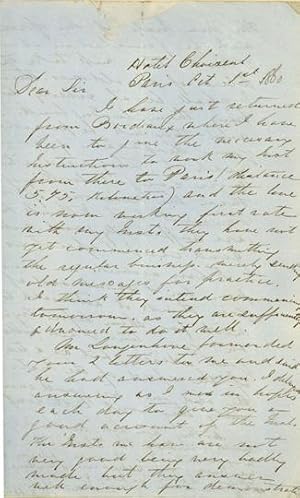 Hotel Choiseul
Paris Oct. 1st 1860
Dear Sir
I have just returned
from Bordeaux where I have
been to give the necessary
instructions to work my Inst
from there to Paris (distance
595 kilometers) and the line
is now working first rate
with my Insts, they have not
yet commenced transmitting
the regular business, merely sending
old messages for practice.
I think they intend commencing
tomorrow, as they are sufficiently
advanced to do it well.
Mr forwarded
your 2 letters to me and said
he had answered you. I delayed
answering as I was in hopes
each day to give you a
good account of the
The Insts we have are not
very good being very badly
made, but they answer
well enough for